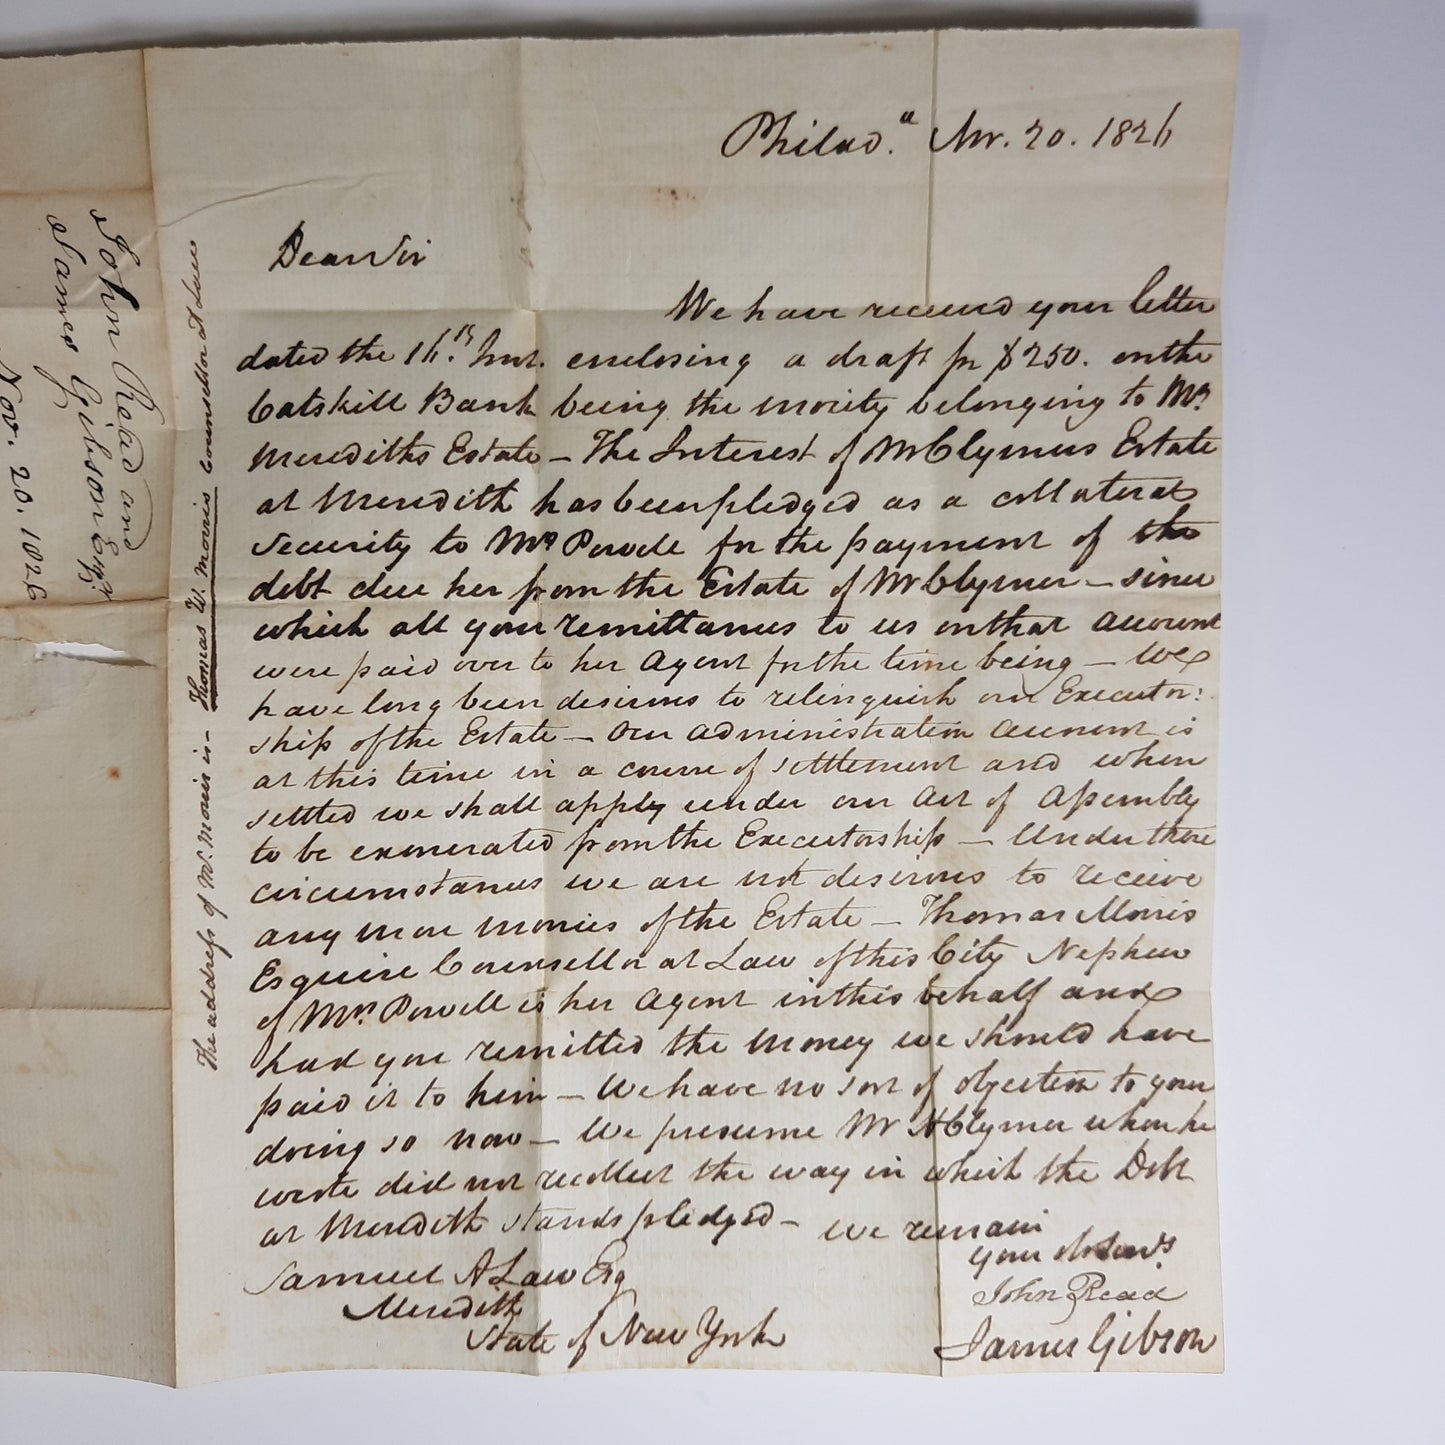 Philad.ª Nov. 20. 1826
Dear Sir
We have received your letter
dated the 16.th Inst. enclosing a draft for $250. on the
Catskill Bank being the moiety belonging to Mr.
Merediths Estate – The Interest of Mr Clymers Estate
at Meredith has been pledged as a collateral
security to Mrs Powell for the payment of the
debt due her from the Estate of Mr Clymer – since
which all your remittances to us on that account
were paid over to her Agent for the time being – We
have long been desirous to relinquish our Executor:
ship of the Estate – Our administration account is
at this time in a course of settlement and when
settled we shall apply under our Act of Assembly
to be exonerated from the Executorship – Under these
circumstances we are not desirous to receive
any more monies of the Estate – Thomas Morris
Esquire Counsellor at Law of this City Nephew
of Mrs. Powell is her Agent in this behalf and
had you remitted the money we should have
paid it to him – We have no sort of objection to your
doing so now – We presume Mr H Clymer when he
wrote did not recollect the way in which the Debt
at Meredith stands pledged – we remain
your ob. Servts.
John Read
James Gibson
Samuel A Law Esq
Meredith
State of New York
The address of Mr. Morris is – Thomas W. Morris Counsellor at Law
John Read and
James Gibson Esqr
Nov. 20. 1826